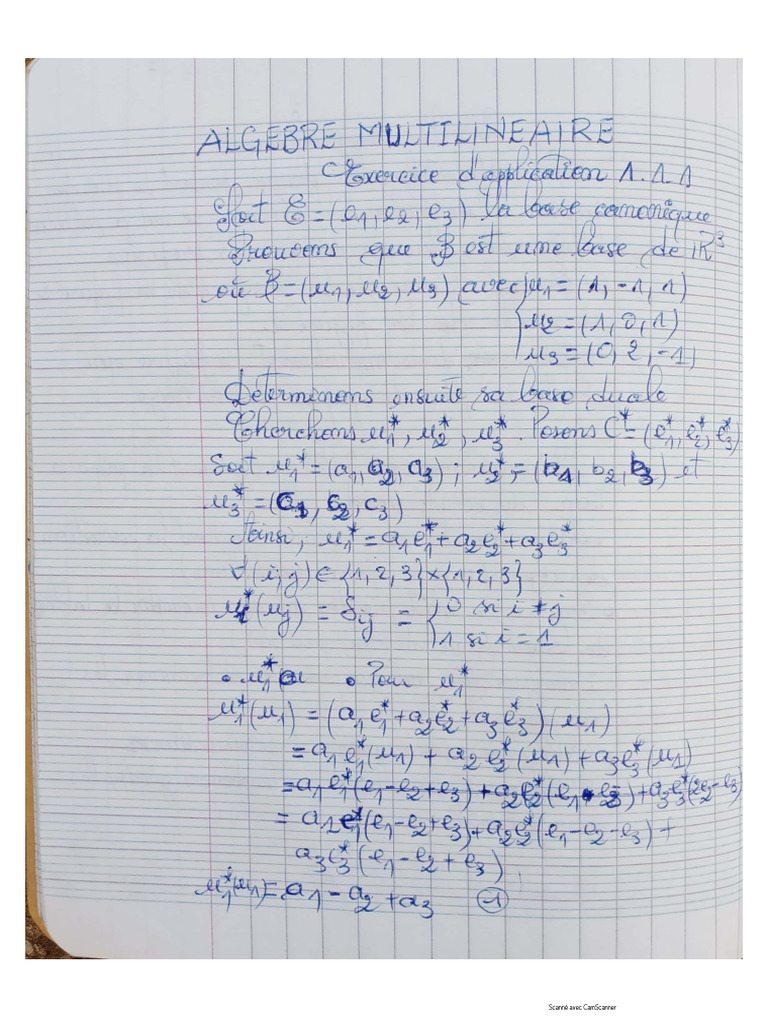 ALGEBRE MULTILINEAIRE
Exercice d'application 1.1.1
Soit C = (e1, e2, e3) la base canonique
Prouvons que B est une base de IR³
où B = (u1, u2, u3) avec { u1 = (1, -1, 1)
u2 = (1, 0, 1)
u3 = (0, 2, -1)
Déterminons ensuite sa base duale
Cherchons u1*, u2*, u3*. Posons C* = (e1*, e2*, e3*)
Soit u1* = (a1, a2, a3) ; u2* = (b1, b2, b3) et
u3* = (c1, c2, c3)
Ainsi, u1* = a1e1* + a2e2* + a3e3*
∀(i,j) ∈ {1, 2, 3} × {1, 2, 3}
ui*(uj) = δij = { 0 si i ≠ j
1 si i = 1
• u1* • Pour u1*
u1*(u1) = (a1e1* + a2e2* + a3e3*)(u1)
= a1e1*(u1) + a2e2*(u1) + a3e3*(u1)
= a1e1*(e1 - e2 + e3) + a2e2*(e1 + e3) + a3e3*(2e2 - e3)
= a1e1*(e1 - e2 + e3) + a2e2*(e1 - e2 - e3) +
a3e3*(e1 - e2 + e3)
u1*(u1) = a1 - a2 + a3 (1)
Scanné avec CamScanner